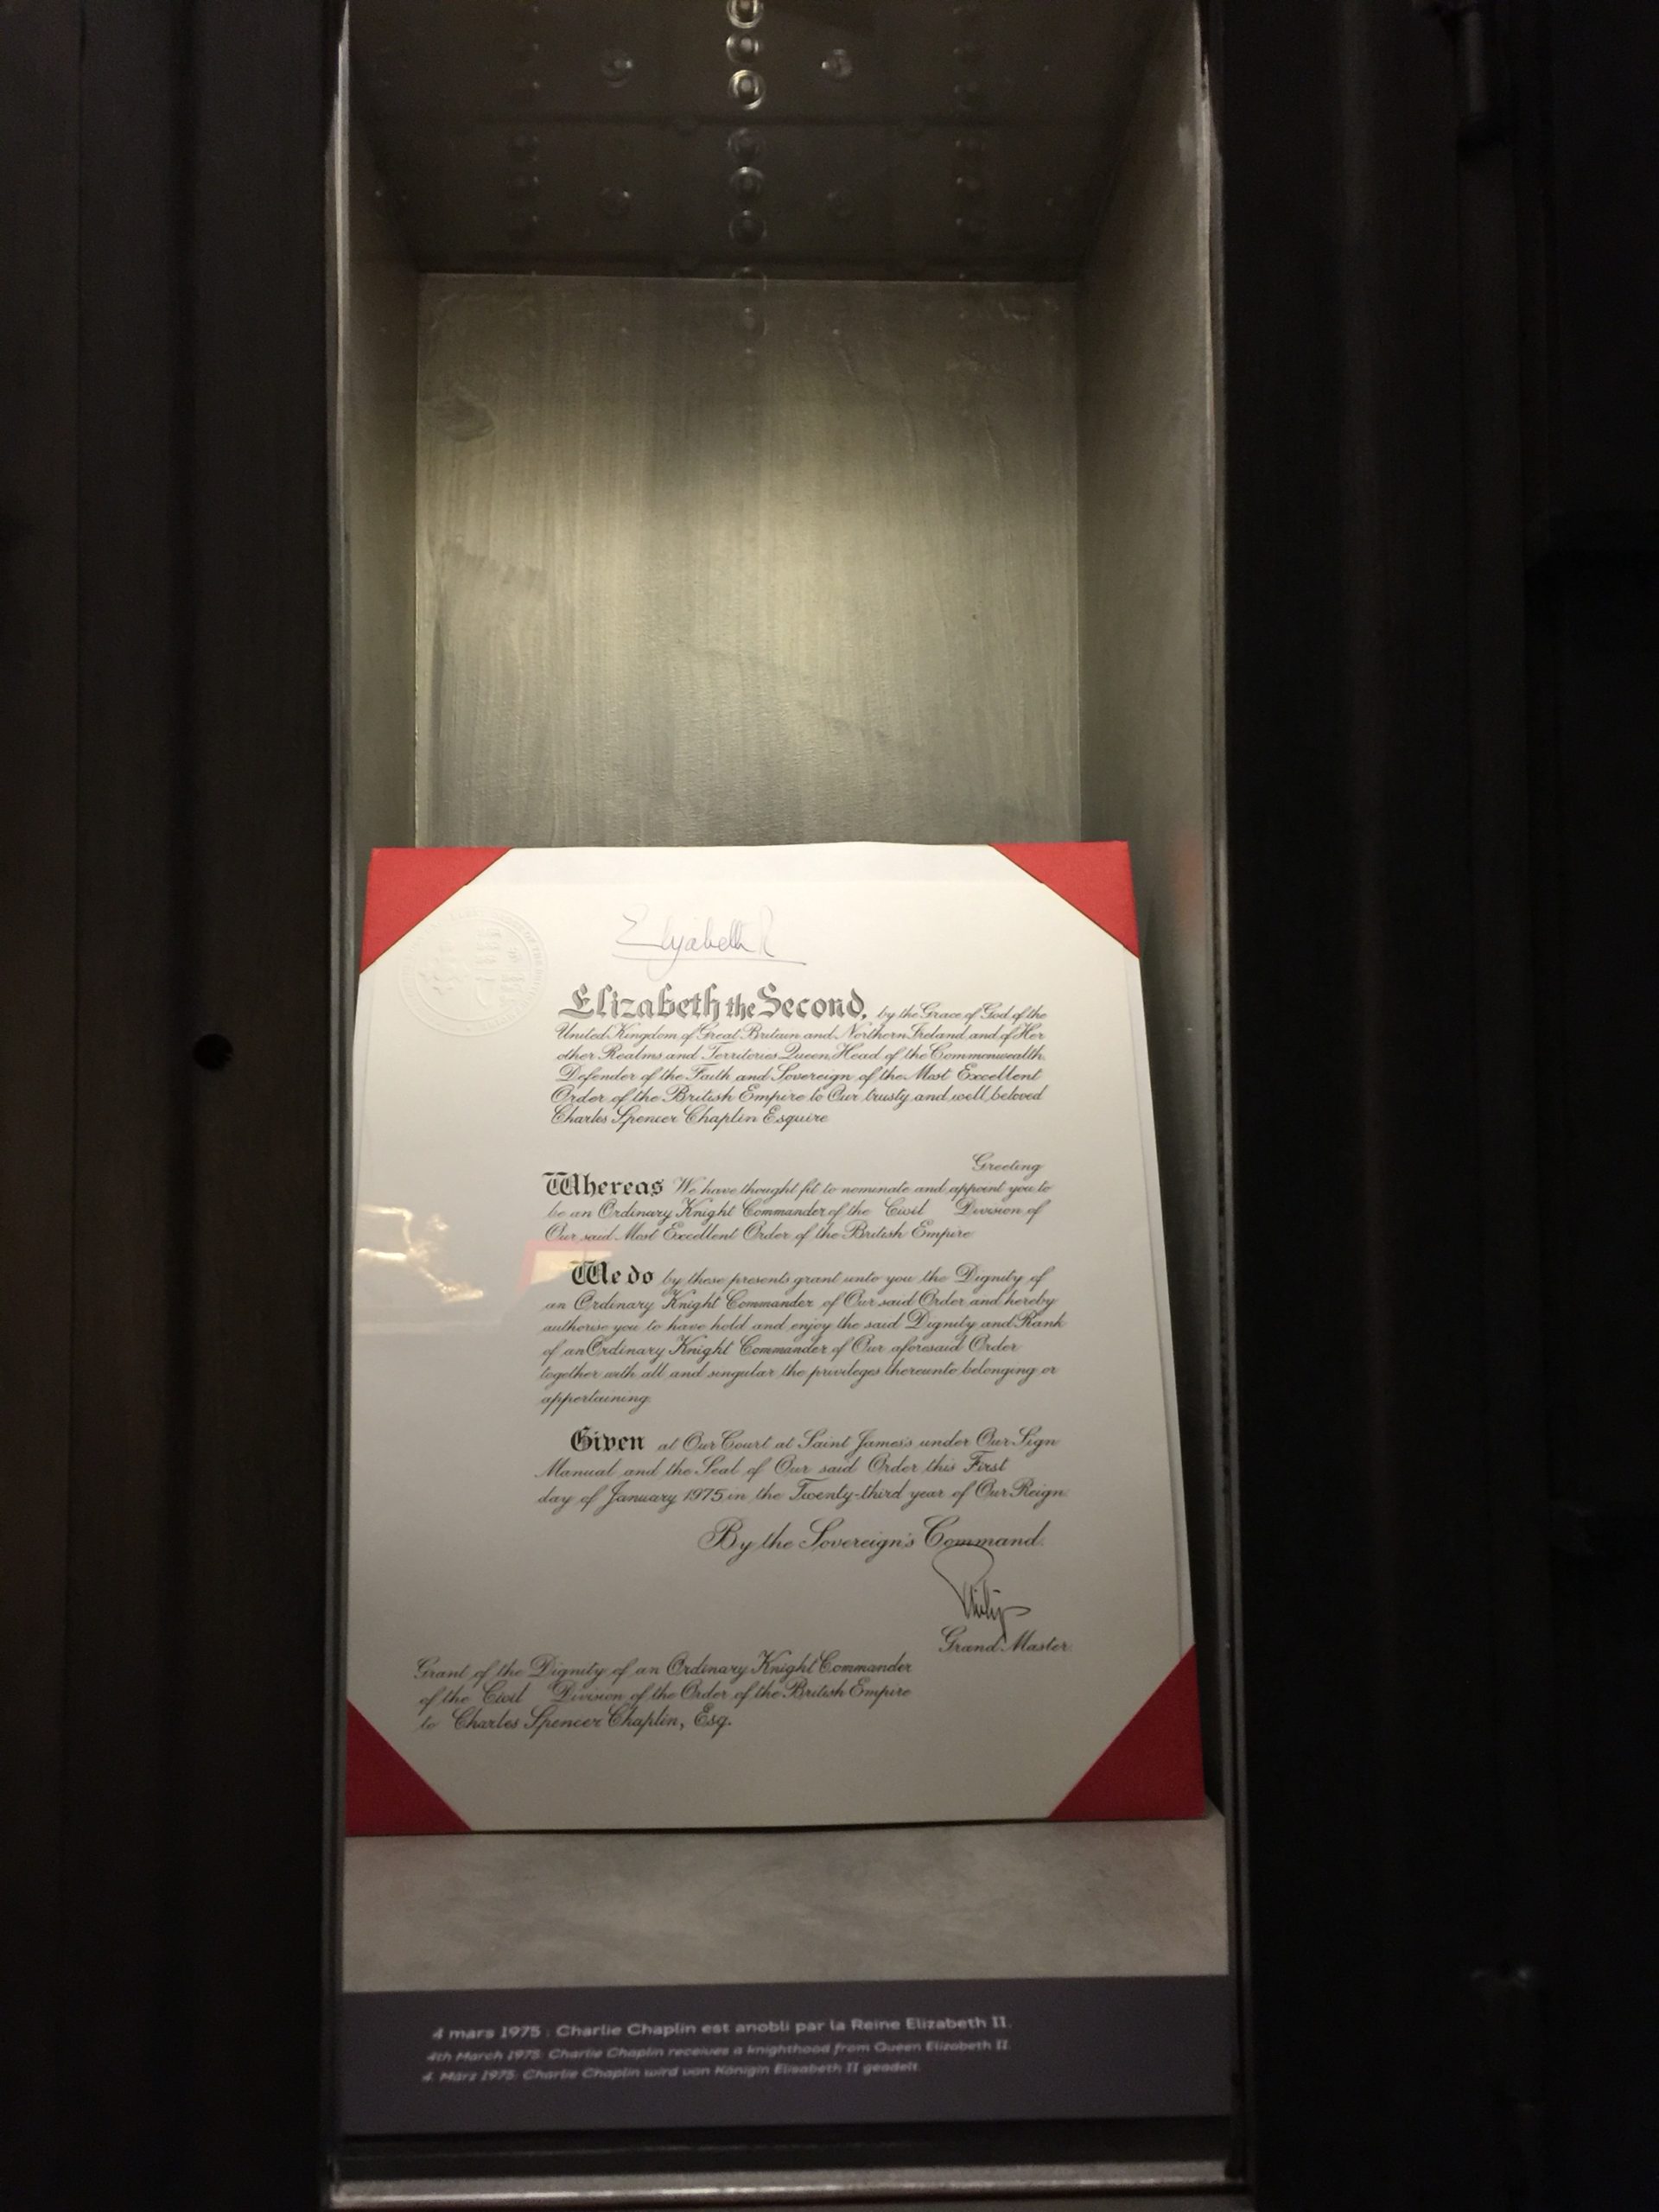 Elizabeth R
Elizabeth the Second, by the Grace of God of the
United Kingdom of Great Britain and Northern Ireland and of Her
other Realms and Territories Queen, Head of the Commonwealth,
Defender of the Faith and Sovereign of the Most Excellent
Order of the British Empire to Our trusty and well beloved
Charles Spencer Chaplin Esquire
Greeting
Whereas We have thought fit to nominate and appoint you to
be an Ordinary Knight Commander of the Civil Division of
Our said Most Excellent Order of the British Empire
We do by these presents grant unto you the Dignity of
an Ordinary Knight Commander of Our said Order and hereby
authorise you to have hold and enjoy the said Dignity and Rank
of an Ordinary Knight Commander of Our aforesaid Order
together with all and singular the privileges thereunto belonging or
appertaining.
Given at Our Court at Saint James's under Our Sign
Manual and the Seal of Our said Order this First
day of January 1975 in the Twenty-third year of Our Reign.
By the Sovereign's Command.
Philip
Grand Master.
Grant of the Dignity of an Ordinary Knight Commander
of the Civil Division of the Order of the British Empire
to Charles Spencer Chaplin, Esq.
4 mars 1975 : Charlie Chaplin est anobli par la Reine Elizabeth II.
4th March 1975: Charlie Chaplin receives a knighthood from Queen Elizabeth II.
4. März 1975: Charlie Chaplin wird von Königin Elisabeth II geadelt.